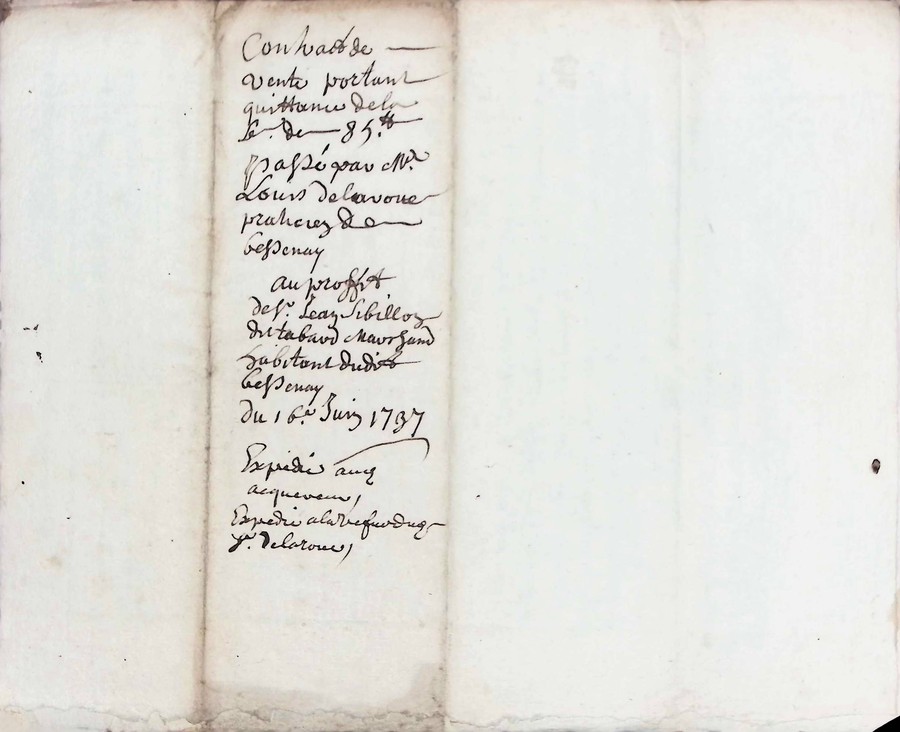 Contract de
vente portant
quittance dela
Se. de 85.tt
passé par Mr.
Louis delaroue
praticien de
bessenay
au proffit
de sr. Jean Sibillon
dit tabard Marchand
habitant dudit
bessenay
du 16e. Juin 1737
Expedié aux
acquereur,
Expedié a la
sr. delaroue,